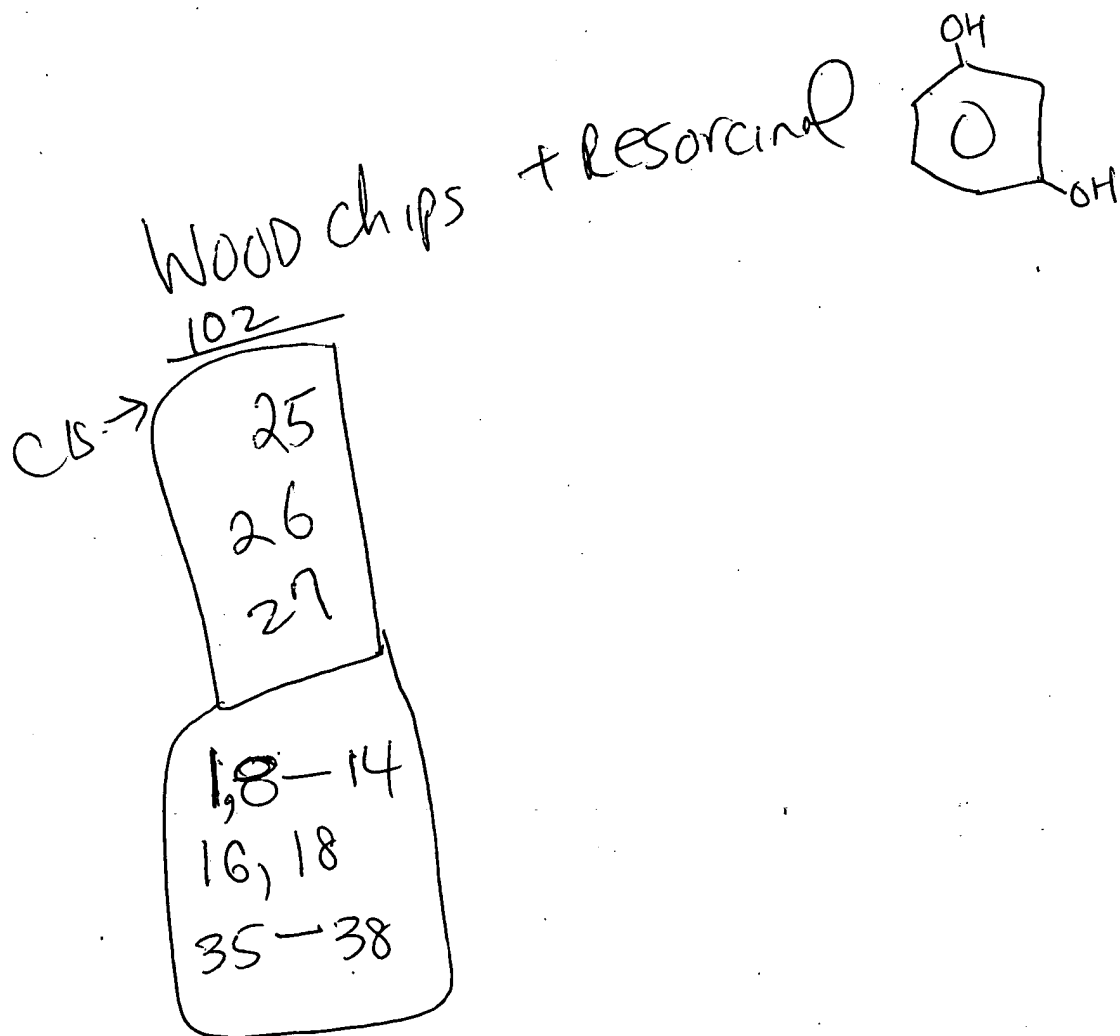 OH
Wood chips + Resorcinol
OH
102
25
26
27
1,8-14
16, 18
35-38